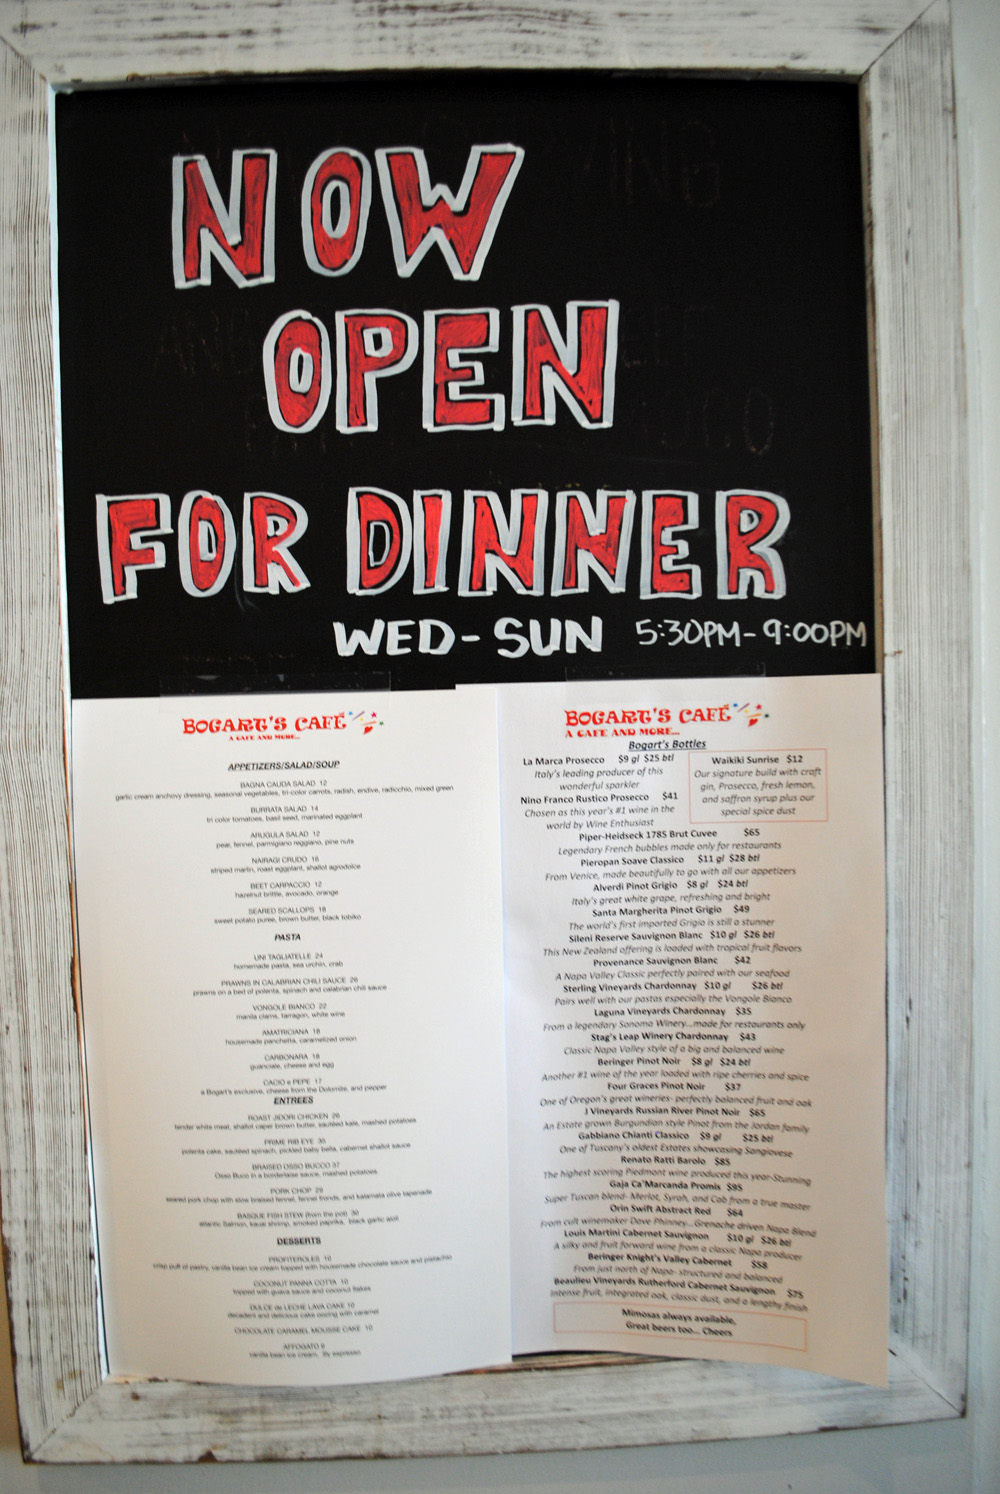 NOW
OPEN
FOR DINNER
WED-SUN 5:30PM-9:00PM
BOGART'S CAFÉ
A CAFE AND MORE...
APPETIZERS/SALAD/SOUP
BAGNA CAUDA SALAD 12
garlic cream anchovy dressing, seasonal vegetables, tri-color carrots, radish, endive, radicchio, mixed green
BURRATA SALAD 14
tri color tomatoes, basil seed, marinated eggplant
ARUGULA SALAD 12
pear, fennel, parmigiano reggiano, pine nuts
NAIRAGI CRUDO 16
striped marlin, roast eggplant, shallot agrodolce
BEET CARPACCIO 12
hazelnut brittle, avocado, orange
SEARED SCALLOPS 18
sweet potato puree, brown butter, black tobiko
PASTA
UNI TAGLIATELLE 24
homemade pasta, sea urchin, crab
PRAWNS IN CALABRIAN CHILI SAUCE 26
prawns on a bed of polenta, spinach and calabrian chili sauce
VONGOLE BIANCO 22
manila clams, tarragon, white wine
AMATRICIANA 18
housemade panchetta, caramelized onion
CARBONARA 18
guanciale, cheese and egg
CACIO e PEPE 17
a Bogart's exclusive, cheese from the Dolomite, and pepper
ENTREES
ROAST JIDORI CHICKEN 26
tender white meat, shallot caper brown butter, sautéed kale, mashed potatoes
PRIME RIB EYE 35
polenta cake, sautéed spinach, pickled baby bella, cabernet shallot sauce
BRAISED OSSO BUCCO 37
Osso Buco in a bordelaise sauce, mashed potatoes
PORK CHOP 29
seared pork chop with slow braised fennel, fennel fronds, and kalamata olive tapenade
BASQUE FISH STEW (from the pot) 30
atlantic Salmon, kauai shrimp, smoked paprika, black garlic aioli
DESSERTS
PROFITEROLES 10
crisp puff of pastry, vanilla bean ice cream topped with housemade chocolate sauce and pistachio
COCONUT PANNA COTTA 10
topped with guava sauce and coconut flakes
DULCE de LECHE LAVA CAKE 10
decadent and delicious cake oozing with caramel
CHOCOLATE CARAMEL MOUSSE CAKE 10
AFFOGATO 9
vanilla bean ice cream, illy espresso
BOGART'S CAFÉ
A CAFE AND MORE...
Bogart's Bottles
La Marca Prosecco $9 gl $25 btl
Italy's leading producer of this
wonderful sparkler
Nino Franco Rustico Prosecco $41
Chosen as this year's #1 wine in the
world by Wine Enthusiast
Waikiki Sunrise $12
Our signature build with craft
gin, Prosecco, fresh lemon,
and saffron syrup plus our
special spice dust
Piper-Heidseck 1785 Brut Cuvee $65
Legendary French bubbles made only for restaurants
Pieropan Soave Classico $11 gl $28 btl
From Venice, made beautifully to go with all our appetizers
Alverdi Pinot Grigio $8 gl $24 btl
Italy's great white grape, refreshing and bright
Santa Margherita Pinot Grigio $49
The world's first imported Grigio is still a stunner
Sileni Reserve Sauvignon Blanc $10 gl $26 btl
This New Zealand offering is loaded with tropical fruit flavors
Provenance Sauvignon Blanc $42
A Napa Valley Classic perfectly paired with our seafood
Sterling Vineyards Chardonnay $10 gl $26 btl
Pairs well with our pastas especially the Vongole Bianco
Laguna Vineyards Chardonnay $35
From a legendary Sonoma Winery...made for restaurants only
Stag's Leap Winery Chardonnay $43
Classic Napa Valley style of a big and balanced wine
Beringer Pinot Noir $8 gl $24 btl
Another #1 wine of the year loaded with ripe cherries and spice
Four Graces Pinot Noir $37
One of Oregon's great wineries- perfectly balanced fruit and oak
J Vineyards Russian River Pinot Noir $65
An Estate grown Burgundian style Pinot from the Jordan family
Gabbiano Chianti Classico $9 gl $25 btl
One of Tuscany's oldest Estates showcasing Sangiovese
Renato Ratti Barolo $85
The highest scoring Piedmont wine produced this year-Stunning
Gaja Ca'Marcanda Promis $95
Super Tuscan blend- Merlot, Syrah, and Cab from a true master
Orin Swift Abstract Red $64
From cult winemaker Dave Phinney...Grenache driven Napa Blend
Louis Martini Cabernet Sauvignon $10 gl $26 btl
A silky and fruit forward wine from a classic Napa producer
Beringer Knight's Valley Cabernet $58
From just north of Napa- structured and balanced
Beaulieu Vineyards Rutherford Cabernet Sauvignon $75
Intense fruit, integrated oak, classic dust, and a lengthy finish
Mimosas always available,
Great beers too... Cheers